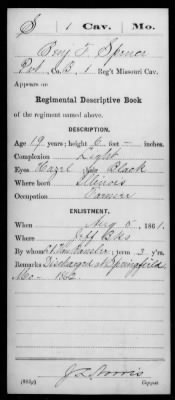 S 1 Cav. Mo.
Benj F. Spencer
Pvt, Co. B, 1 Reg't Missouri Cav.
Appears on
Regimental Descriptive Book
of the regiment named above.
DESCRIPTION.
Age 19 years; height 6 feet – inches.
Complexion Light
Eyes Hazel; hair Black
Where born Illinois
Occupation Farmer
ENLISTMENT.
When Aug 5, 1861.
Where Jeff Bks
By whom ; term 3 y'rs.
Remarks Discharged at Springfield
Mo – 1862.
J L Norris
Copyist.